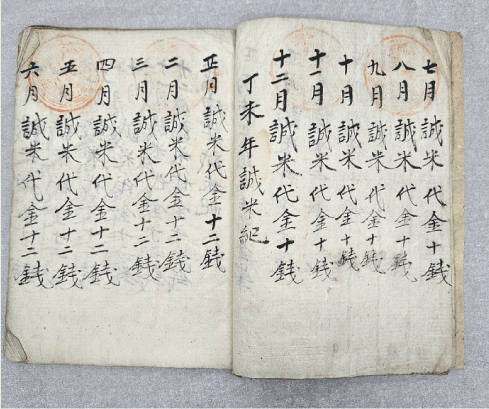 七月誠米代金十錢
八月誠米代金十錢
九月誠米代金十錢
十月誠米代金十錢
十一月誠米代金十錢
十二月誠米代金十錢
丁未年誠米紀
正月誠米代金十二錢
二月誠米代金十二錢
三月誠米代金十二錢
四月誠米代金十二錢
五月誠米代金十二錢
六月誠米代金十二錢